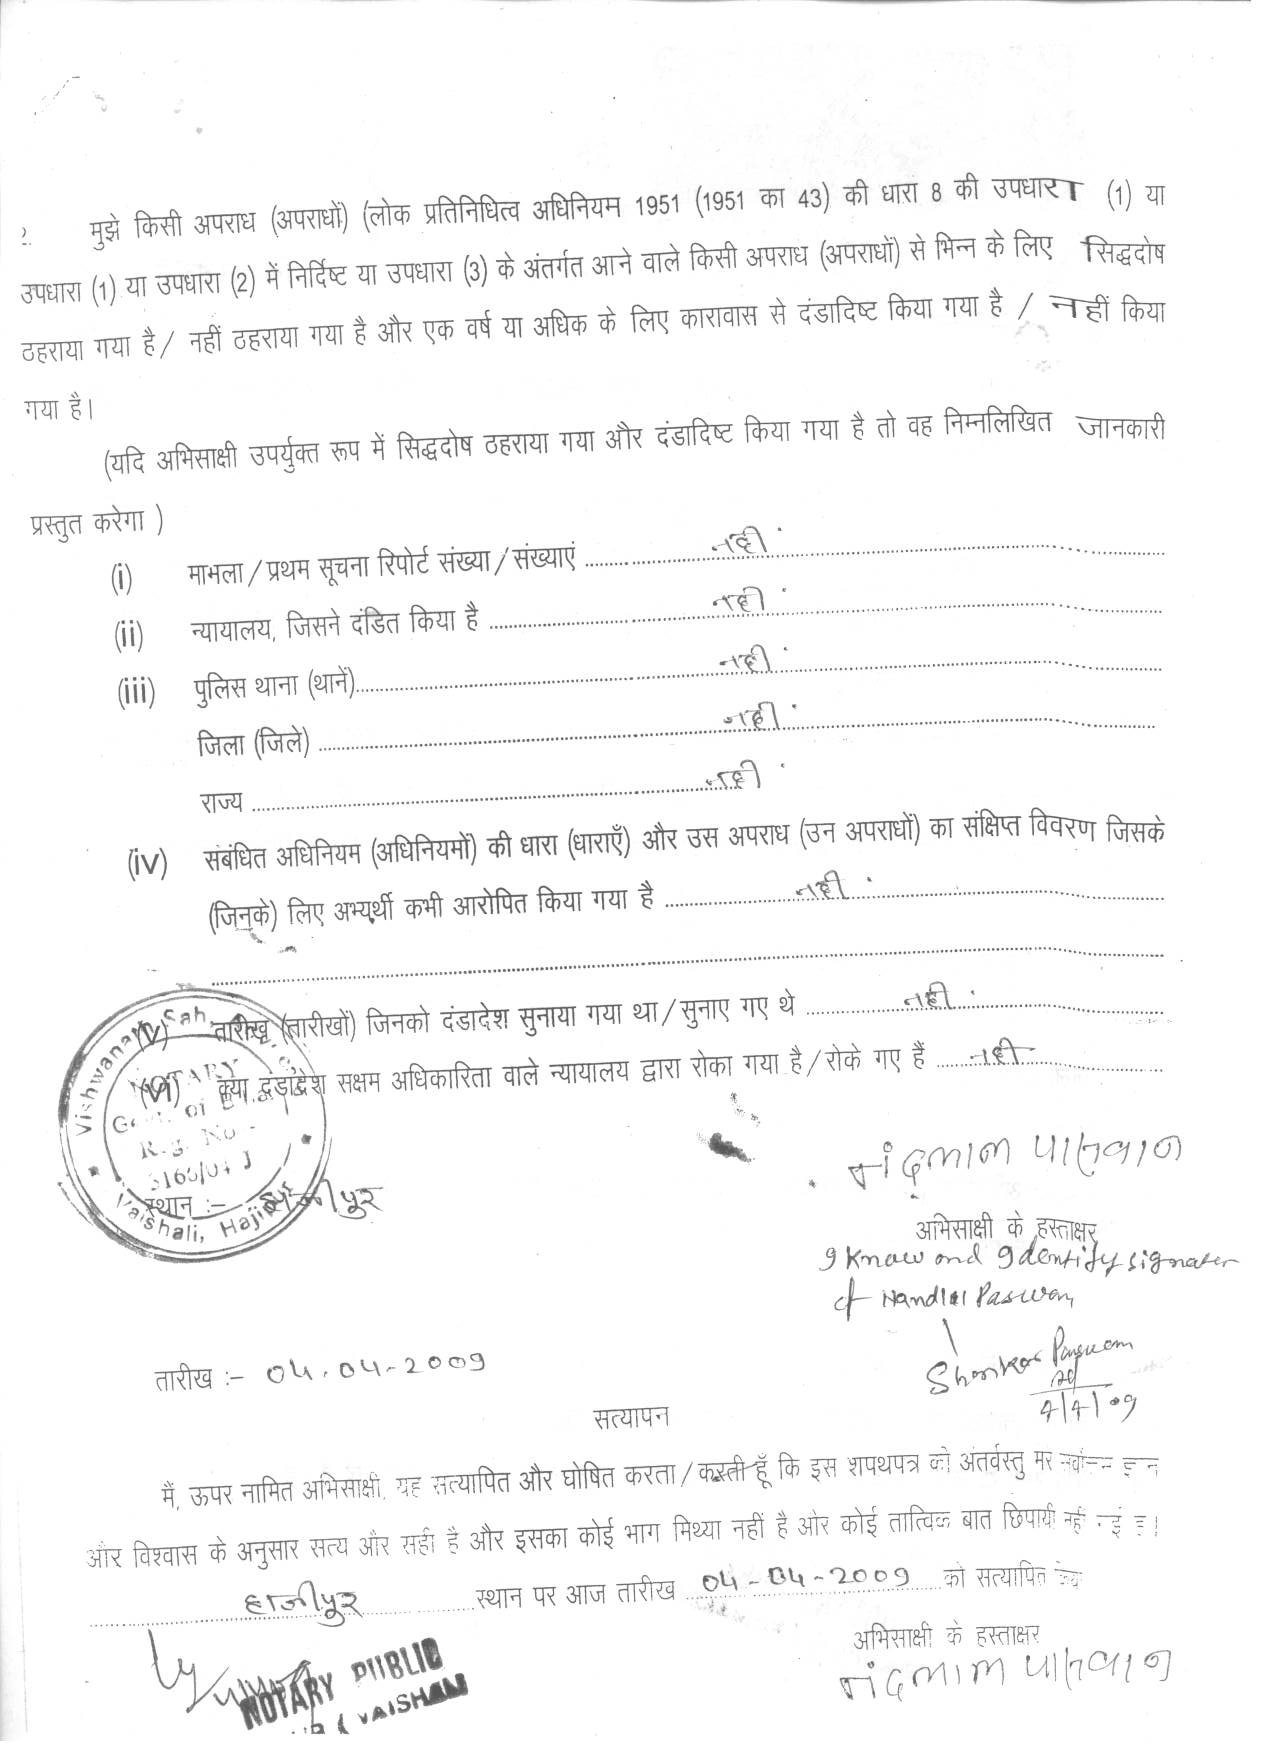 2. मुझे किसी अपराध (अपराधों) (लोक प्रतिनिधित्व अधिनियम 1951 (1951 का 43) की धारा 8 की उपधारा (1) या
उपधारा (1) या उपधारा (2) में निर्दिष्ट या उपधारा (3) के अंतर्गत आने वाले किसी अपराध (अपराधों) से भिन्न के लिए सिद्धदोष
ठहराया गया है / नहीं ठहराया गया है और एक वर्ष या अधिक के लिए कारावास से दंडादिष्ट किया गया है / नहीं किया
गया है।
(यदि अभिसाक्षी उपर्युक्त रूप में सिद्धदोष ठहराया गया और दंडादिष्ट किया गया है तो वह निम्नलिखित जानकारी
प्रस्तुत करेगा )
(i) माभला / प्रथम सूचना रिपोर्ट संख्या / संख्याएं ........ नहीं ........
(ii) न्यायालय, जिसने दंडित किया है ........ नहीं ........
(iii) पुलिस थाना (थानें) ........ नहीं ........
जिला (जिले) ........ नहीं ........
राज्य ........ नहीं
(iv) संबंधित अधिनियम (अधिनियमों) की धारा (धाराएँ) और उस अपराध (उन अपराधों) का संक्षिप्त विवरण जिसके
(जिनके) लिए अभ्यर्थी कभी आरोपित किया गया है ........ नहीं ........
(v) तारीख (तारीखों) जिनको दंडादेश सुनाया गया था / सुनाए गए थे ........ नहीं ........
(vi) क्या दंडादेश सक्षम अधिकारिता वाले न्यायालय द्वारा रोका गया है / रोके गए हैं ........ नहीं ........
Vishwanath Sah
NOTARY
Reg. No.
Vaishali, Hajipur
नंदलाल पासवान
स्थान :- हाजीपुर
अभिसाक्षी के हस्ताक्षर
I Know and Identify signater
of Nandlal Paswan
Shankar Paswan
4/4/09
तारीख :- 04.04-2009
सत्यापन
मैं, ऊपर नामित अभिसाक्षी, यह सत्यापित और घोषित करता / करती हूँ कि इस शपथपत्र की अंतर्वस्तु
और विश्वास के अनुसार सत्य और सही है और इसका कोई भाग मिथ्या नहीं है और कोई तात्विक बात छिपायी नहीं गई है।
हाजीपुर ........ स्थान पर आज तारीख 04-04-2009 को सत्यापित
अभिसाक्षी के हस्ताक्षर
नंदलाल पासवान
NOTARY PUBLIC
VAISHALI